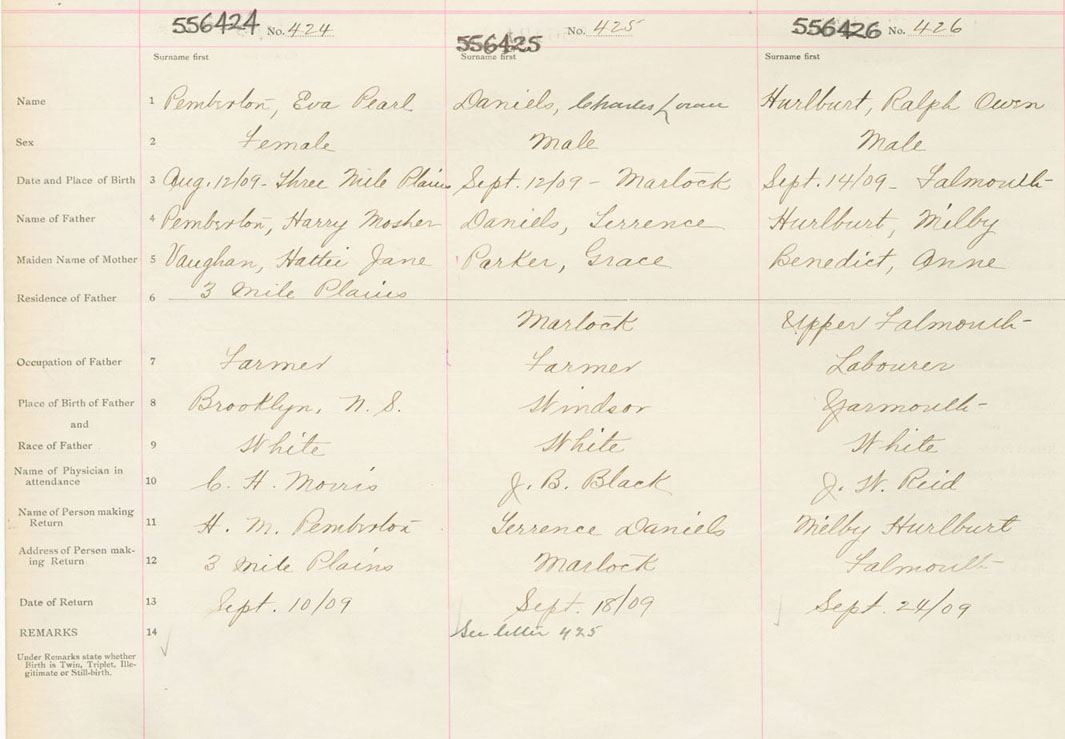 556424 No. 424 556425 No. 425 556426 No. 426
Surname first Surname first Surname first
Name 1 Pemberton, Eva Pearl Daniels, Charles Hurlburt, Ralph Owen
Sex 2 Female Male Male
Date and Place of Birth 3 Aug. 12/09 - Three Mile Plains Sept. 12/09 - Martock Sept. 14/09 - Falmouth
Name of Father 4 Pemberton, Harry Mosher Daniels, Terrence Hurlburt, Milby
Maiden Name of Mother 5 Vaughan, Hattie Jane Parker, Grace Benedict, Anne
Residence of Father 6 3 Mile Plains
Martock Upper Falmouth
Occupation of Father 7 Farmer Farmer Labourer
Place of Birth of Father 8 Brooklyn, N. S. Windsor Yarmouth
and
Race of Father 9 White White White
Name of Physician in
attendance 10 C. H. Morris J. B. Black J. W. Reid
Name of Person making
Return 11 H. M. Pemberton Terrence Daniels Milby Hurlburt
Address of Person mak-
ing Return 12 3 Mile Plains Martock Falmouth
Date of Return 13 Sept. 10/09 Sept. 18/09 Sept. 24/09
REMARKS 14 See letter 425
Under Remarks state whether
Birth is Twin, Triplet, Ille-
gitimate or Still-birth.